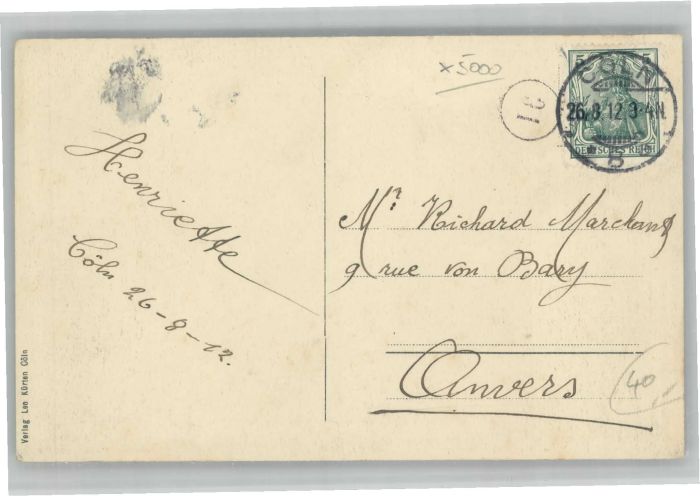 x 5000
5 5
DEUTSCHES REICH
CÖLN
26.8.12.3-4N.
* 5 *
31
Henriette
Cöln 26-8-12.
Mr. Richard Marchand
9 rue von Bary
Anvers
40
Verlag Leo Kürten Cöln